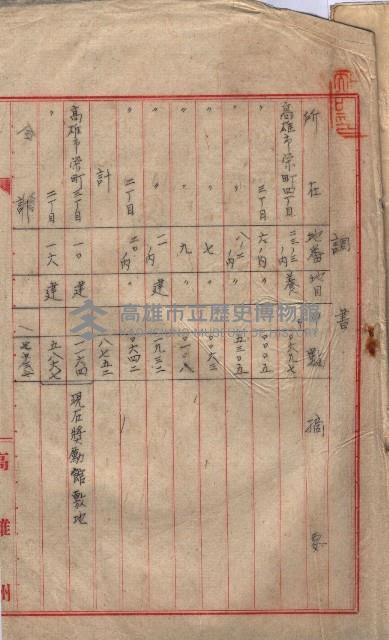 調書
所在 地番 地目 甲數 摘要
高雄市栄町四丁目 二三ノ三 養 〇〇六九七
〃 三丁目 六ノ内 〃 〇〇〇五
〃 八ノ二ノ内 〃 五三〇五
〃 七 〃 〇〇六三
〃 九 〃 〇一〇八
〃 一一ノ内 建 一九三二
〃 二丁目 二〇ノ内 〃 〇六四二
計 八七五二
高雄市栄町三丁目 一〇 建 一一六四 現在奨勵館敷地
〃 二丁目 一六 建 五八七七
合計
高雄州
高雄市立歷史博物館
KAOHSIUNG MUSEUM OF HISTORY